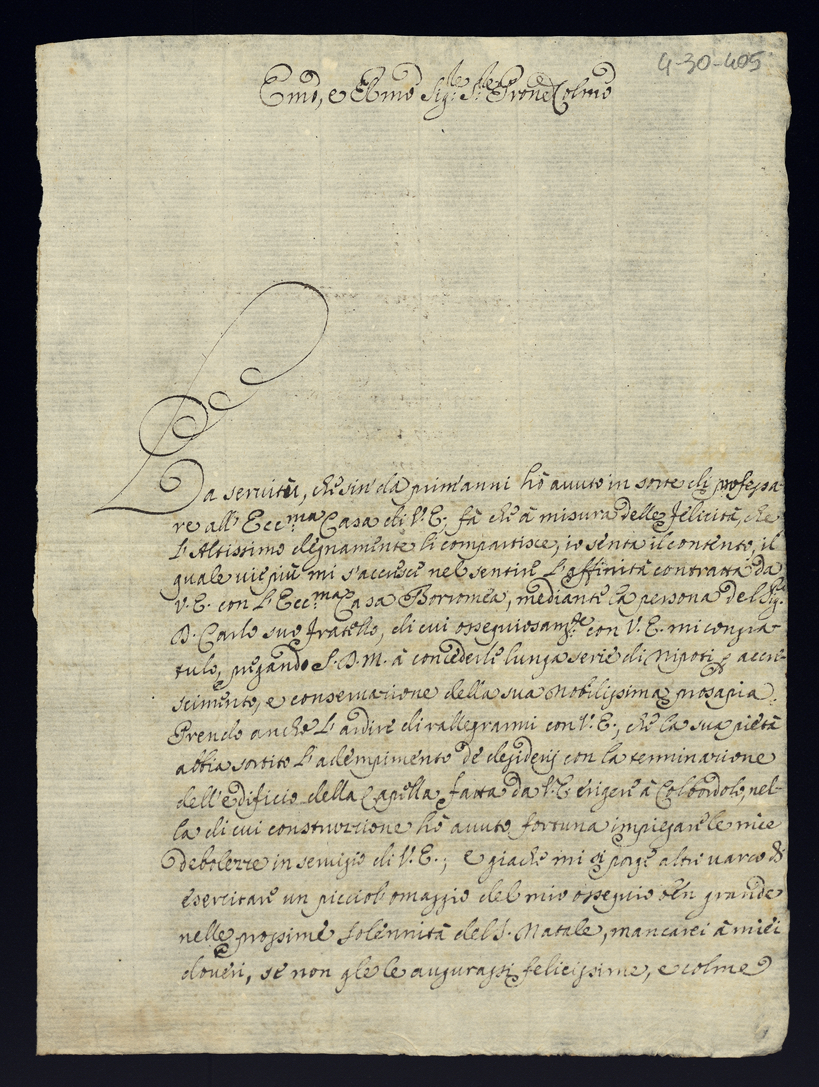 4-30-405
Emo, e Rmo Sig.re S.re Prone Colmo
La servitù, che sin da prim'anni hò avuto in sorte di professa-
re all' Ecc.ma Casa di V.E. fà che à misura delle felicità, che
l'Altissimo degnamente li compartisce, io senta il contento, il
quale vie più mi s'accresce nel sentire l'affinità contratta da
V.E. con l'Ecc.ma Casa Borromea, mediante la persona del Sig.
D. Carlo suo fratello, di cui ossequiosam.te con V.E. mi congra-
tulo, pregando S.D.M. à concederle lunga serie di Nipoti p accre-
scimento, e conservazione della sua nobilissima prosapia.
Prendo anche l'ardire di rallegrarmi con V.E., che la sua pietà
abbia sortito l'adempimento de desiderij con la terminazione
dell'edificio della Capella fatta da V.E. erigere à Colbordolo, nel-
la di cui construzione hò avuto fortuna impiegare le mie
debolezze in servigio di V.E.; e giache mi si porge altro varco di
esercitare un picciol omaggio del mio ossequio ben grande
nelle prossime solennità del S. Natale, mancarei à miei
doveri, se non gle le augurassi felicissime, e colme